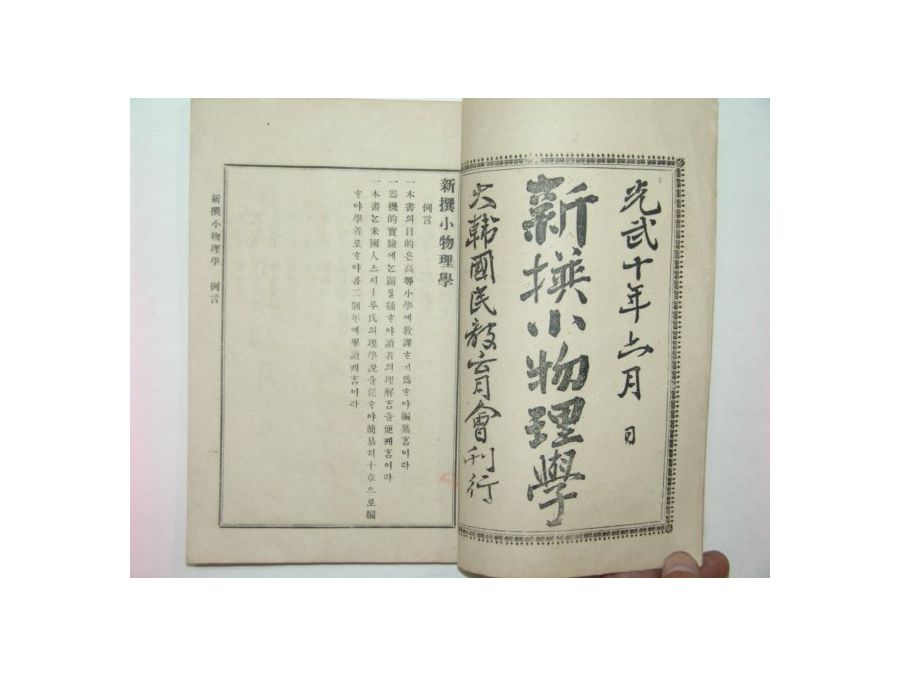 光武十年六月 日
新撰小物理學
大韓國民敎育會刊行
新撰小物理學
例言
一本書의目的은高等小學에敎課ᄒᆞ기爲ᄒᆞ야編纂홈이라
一器機的實驗에ᄂᆞᆫ圖를揷ᄒᆞ야讀者의理解홈을便케홈이라
一本書ᄂᆞᆫ米國人스지ー루氏의理學說을從ᄒᆞ야簡易히十章으로編
ᄒᆞ야學者로ᄒᆞ야곰二個年에畢讀케홈이라
新撰小物理學 例言